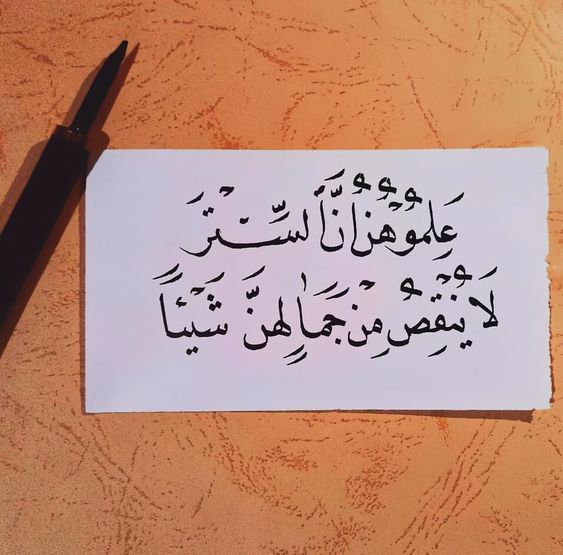 عَلِمُوْهُنْ أنَّ السِّتْرَ
لَا يُنْقِصُ مِنْ جَمَالِهنَّ شَيْئاً